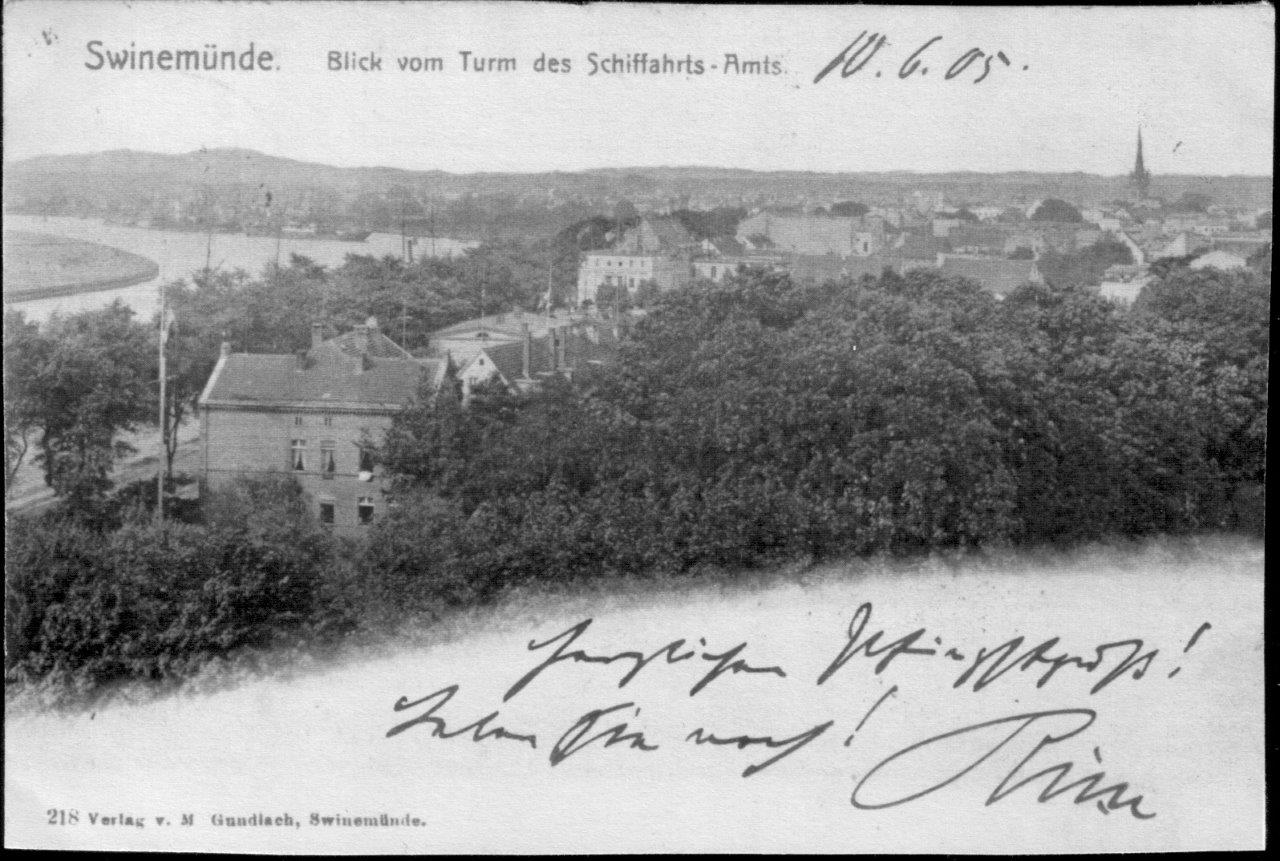 Swinemünde. Blick vom Turm des Schiffahrts-Amts. 10. 6. 05.
Herzlichen Pfingstgruß!
Leben Sie noch!
218 Verlag v. M Gundlach, Swinemünde.